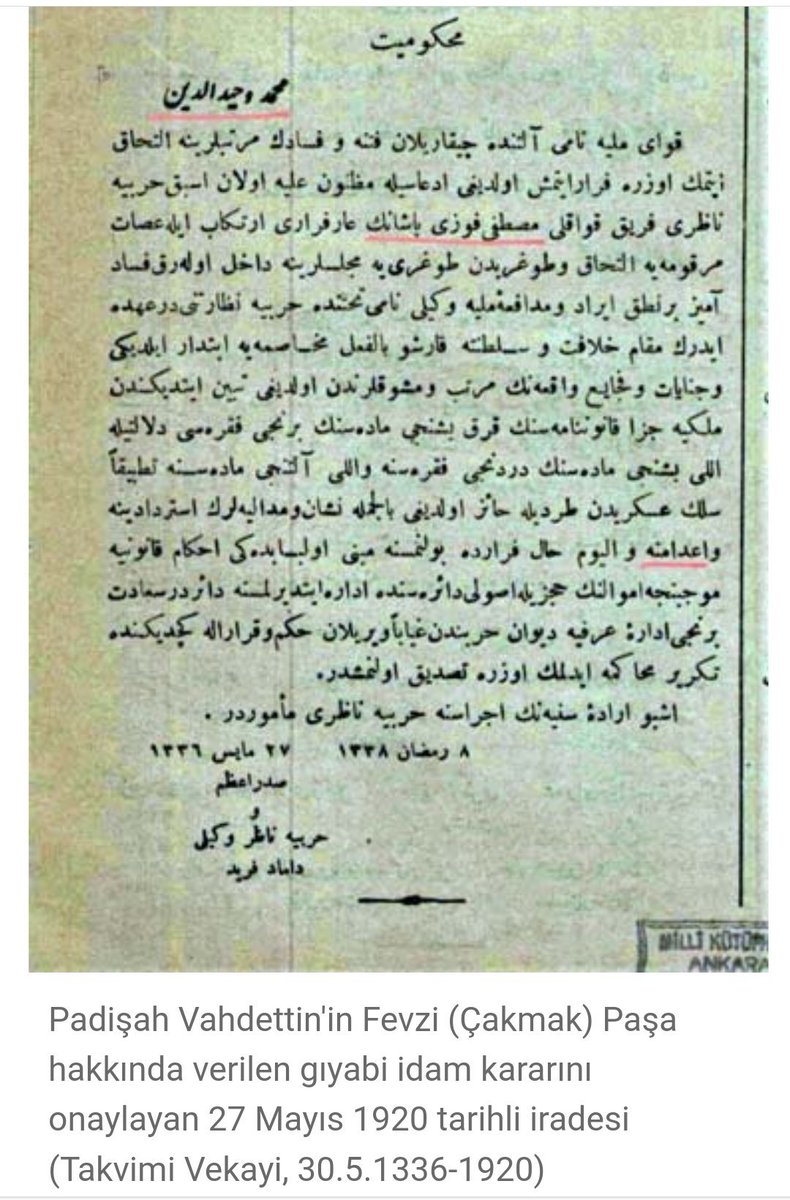 محكوميت
محمد وحيدالدين
قواى مليه نامى آلتنده چيقاريلان فتنه و فسادك مرتبلرينه التحاق
ايتمك اوزره فرار ايتمش اولديغى ادعاسيله مظنون عليه اولان اسبق حربيه
ناظرى فريق قواقلى مصطفى فوزى پاشانك عار فرارى ارتكاب ايله عصات
مرقومه يه التحاق وطوغريدن طوغرى يه مجلسلرينه داخل اوله رق فساد
آميز بر نطق ايراد ومدافعۀ مليه وكيلى نامى تحتنده حربيه نظارتنى درعهده
ايدرك مقام خلافت و سلطنته قارشو بالفعل مخاصمه يه ابتدار ايلديكى
وجنايات و فجايع واقعه نك مرتب ومشوقلرندن اولديغى تبين ايتديكندن
ملكيه جزا قانوننامه سنك قرق بشنجى ماده سنك برنجى فقره سى دلالتيله
اللى بشنجى ماده سنك دردنجى فقره سنه واللى آلتنجى ماده سنه تطبيقاً
سلك عسكريدن طرديله حائز اولديغى بالجمله نشان ومداليه لرك استردادينه
واعدامنه و اليوم حال فرارده بولنمسنه مبنى اولبابده كى احكام قانونيه
موجبنجه اموالنك حجزيله اصولى دائره سنده اداره ايتديرلمسنه دائر درسعادت
برنجى ادارۀ عرفيه ديوان حربندن غياباً ويريلان حكم وقرار اله كچديكنده
تكرير محاكمه ايدلمك اوزره تصديق اولنمشدر.
اشبو ارادۀ سنيه نك اجراسنه حربيه ناظرى مأموردر .
٨ رمضان ١٣٣٨ ٢٧ مايس ١٣٣٦
صدراعظم
و
حربيه ناظر وكيلى
داماد فريد
MİLLİ KÜTÜPH
ANKARA
Padişah Vahdettin'in Fevzi (Çakmak) Paşa
hakkında verilen gıyabi idam kararını
onaylayan 27 Mayıs 1920 tarihli iradesi
(Takvimi Vekayi, 30.5.1336-1920)